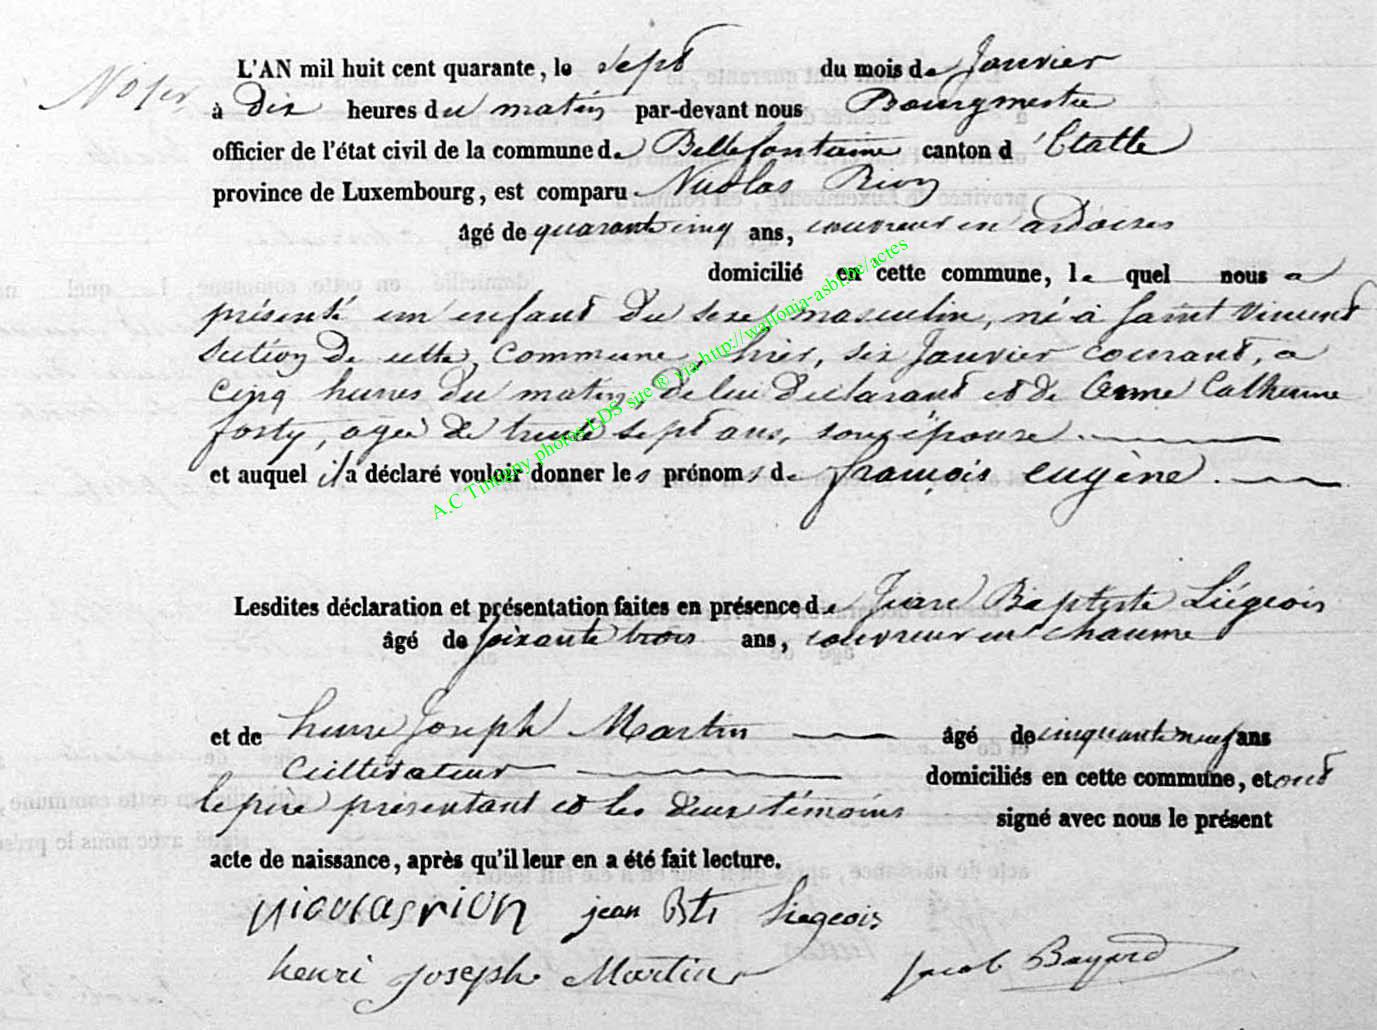 L'AN mil huit cent quarante, le sept du mois de Janvier
à dix heures du matin par-devant nous Bourgmestre
officier de l'état civil de la commune de Bellefontaine canton d'Etalle
province de Luxembourg, est comparu Nicolas Rion
âgé de quarante cinq ans, couvreur en ardoises
domicilié en cette commune, lequel nous a
présenté un enfant du sexe masculin, né à Saint Vincent
section de cette commune, hier, six Janvier courant, a
cinq heures du matin, de lui déclarant et de Catherine
forty, agée de trente sept ans, son épouse.
et auquel il a déclaré vouloir donner les prénoms de françois eugène.
Lesdites déclaration et présentation faites en présence de Jean Baptiste Liégeois
âgé de soixante trois ans, couvreur en chaume
et de henri Joseph Martin âgé de cinquante neuf ans
cultivateur domiciliés en cette commune, et ont
le père présentant et les deux témoins signé avec nous le présent
acte de naissance, après qu'il leur en a été fait lecture.
nicolas rion jean Bte Liegeois
henri joseph Martin Jacob Bayard
A.C Tintigny photos LDS site ® via http://wallonia-asbl.be/actes